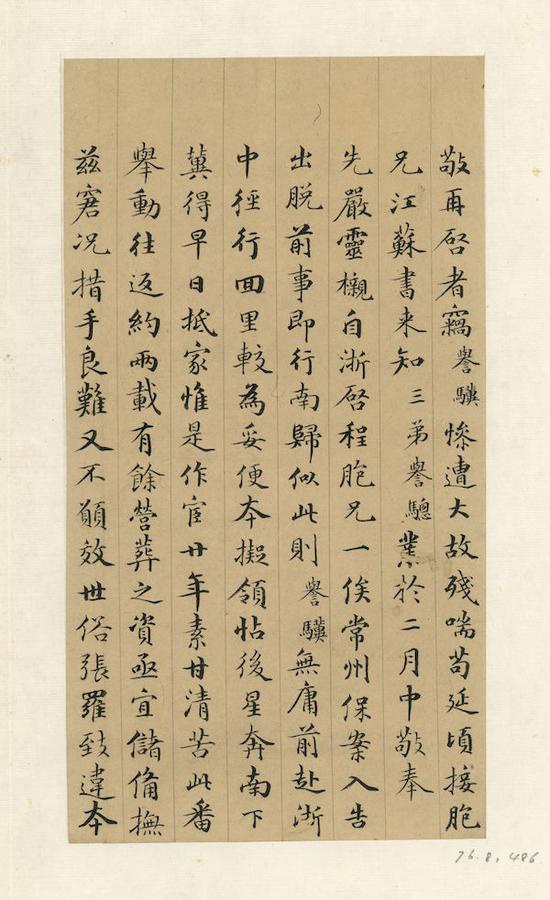 敬再啓者竊譽驥慘遭大故殘喘苟延頃接胞
兄江蘇書来知三弟譽驄業於二月中敬奉
先嚴靈櫬自浙啓程胞兄一俟常州保案入告
出脱前事即行南歸似此則譽驥無庸前赴浙
中徑行回里較為妥便夲擬領帖後星奔南下
冀得早日抵家惟是作宦廿年素甘清苦此番
舉動往返約兩載有餘營葬之資亟宜儲備撫
兹窘况措手良難又不願效世俗張羅致違夲
76.8.486